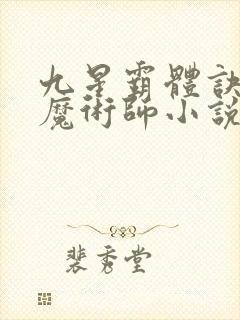 九星霸體訣
魔術師小說
裴秀堂